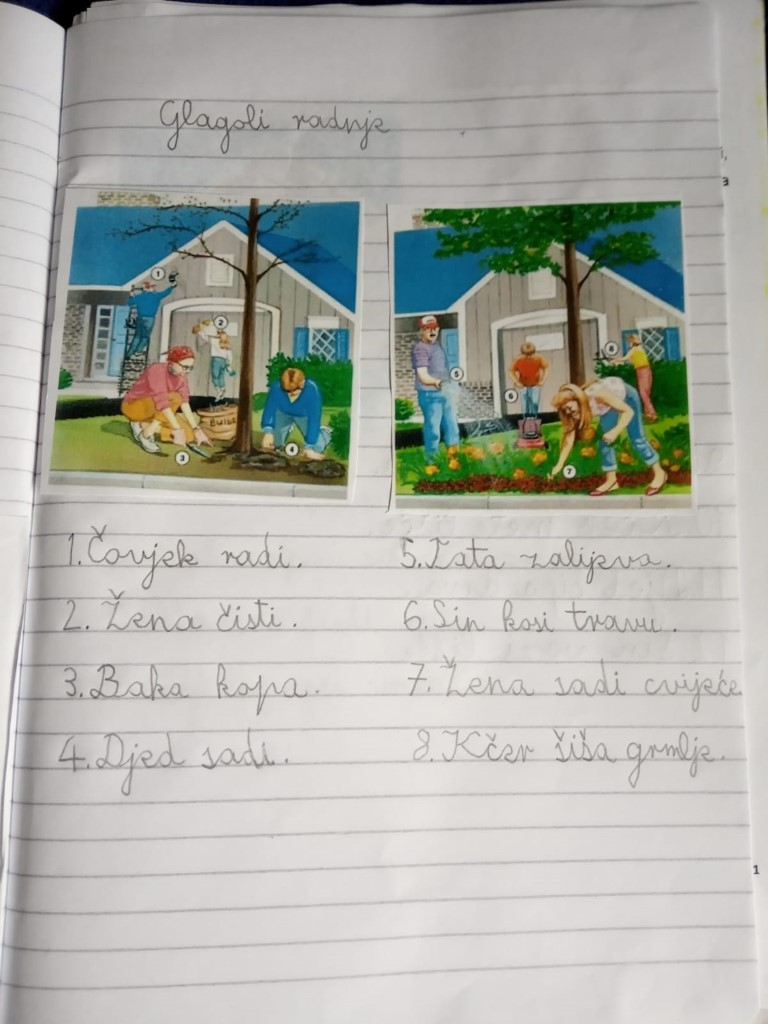 Glagoli radnje
1. Čovjek radi.
2. Žena čisti.
3. Baka kopa.
4. Djed sadi.
5. Tata zalijeva.
6. Sin kosi travu.
7. Žena sadi cvijeće
8. Kčer šiša grmlje.
1
2
3
4
5
6
7
8
3
1